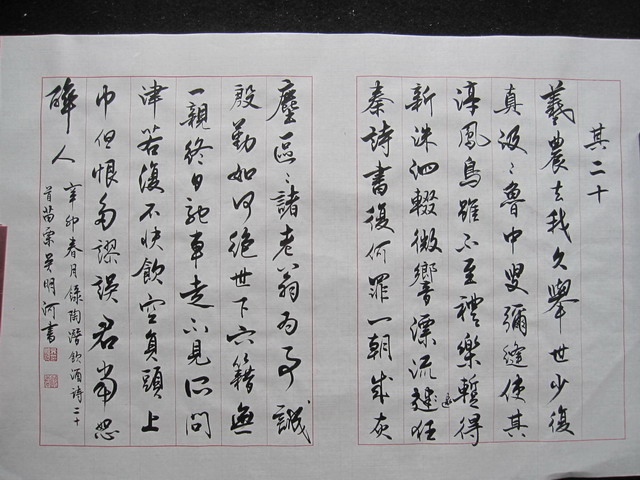 其二十
羲農去我久舉世少復
真汲々魯中叟彌縫使其
淳鳳鳥雖不至禮樂暫得
新洙泗輟微響漂流逮狂
秦詩書復何罪一朝成灰
塵區々諸老翁為事誠
殷勤如何絕世下六籍無
一親終日馳車走不見所問
津若復不快飲空負頭上
巾但恨多謬誤君當恕
醉人
辛卯春月錄陶潛飲酒詩二十
首苗栗吳明河書